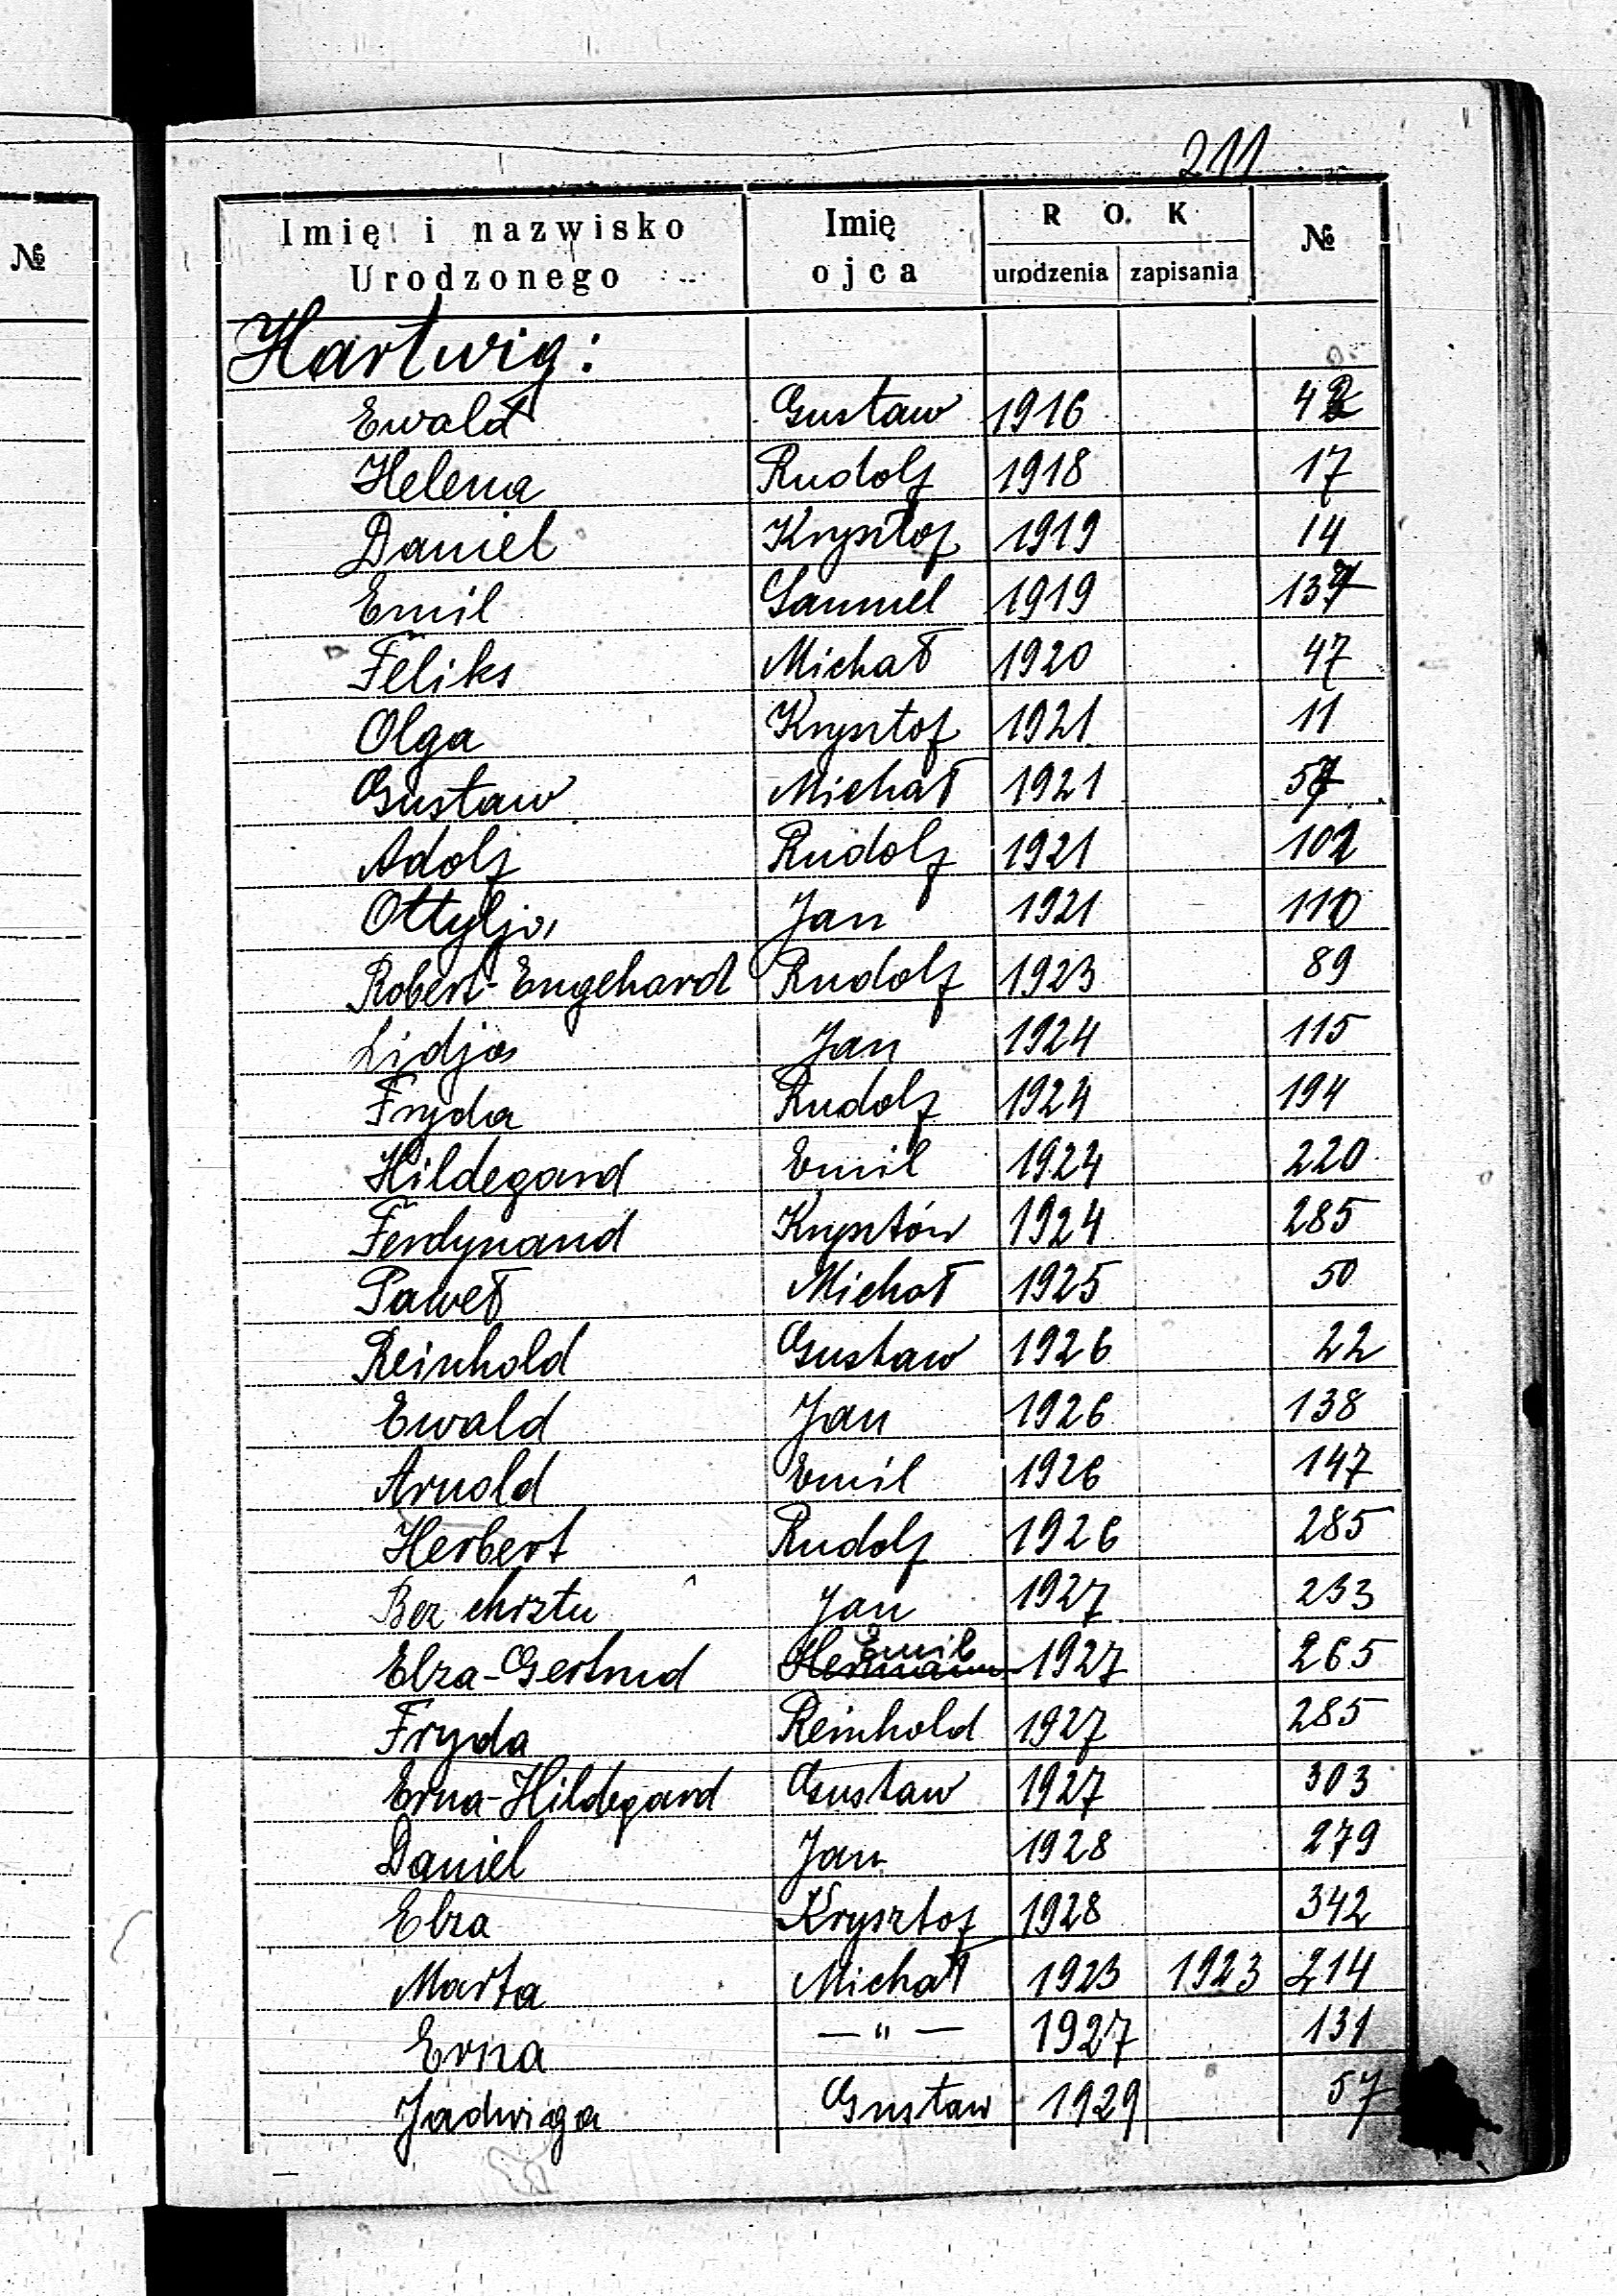 №
211
Imię i nazwisko Urodzonego Imię ojca ROK urodzenia zapisania №
Hartwig:
Ewald Gustaw 1916 42
Helena Rudolf 1918 17
Daniel Krysztof 1919 14
Emil Samuel 1919 137
Feliks Michał 1920 47
Olga Krysztof 1921 11
Gustaw Michał 1921 57
Adolf Rudolf 1921 102
Ottylja Jan 1921 110
Robert-Engehard Rudolf 1923 89
Lidja Jan 1924 115
Fryda Rudolf 1924 194
Hildegard Emil 1924 220
Ferdynand 1924 285
Paweł Michał 1925 50
Reinhold Gustaw 1926 22
Ewald Jan 1926 138
Arnold Emil 1926 147
Herbert Rudolf 1926 285
Bez chrztu Jan 1927 233
Elza-Gertrud Hermann Emil 1927 265
Fryda Reinhold 1927 285
Erna-Hildegard Gustaw 1927 303
Daniel Jan 1928 279
Elza Krysztof 1928 342
Marta Michał 1923 1923 214
Erna — " — 1927 131
Jadwiga Gustaw 1929 57